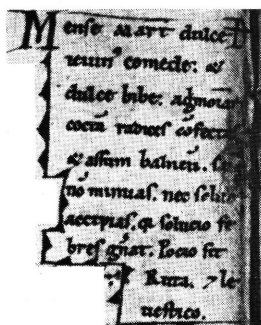 Mense MART dulce
comede; &
dulce bibe;
coctā radices cōfect
& assum balneū.
nō minuas. nec
accipias. q̄ solutio fe
bres gn̄at. Pocio sit
Ruta. ⁊ le
uestico.